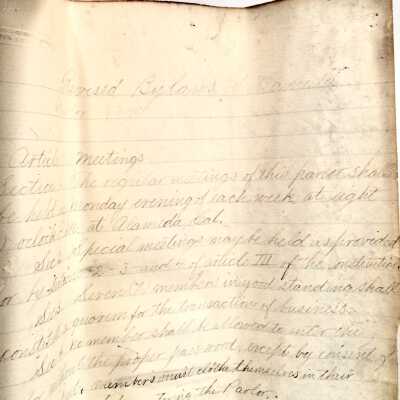 Revised Bylaws of
Article Meetings
Section The regular meetings of this parlor shall
be held Monday evening of each week at eight
o'clock at Alameda, Cal.
Sec special meetings may be held as provided
or by 2-3 and 4 of article III of the constitution
Sec Seven (7) members in good standing shall
constitute a quorum for the transaction of business.
Sec no member shall be allowed to enter the
the proper password, except by consent of
members must clothe themselves in their
the Parlor.